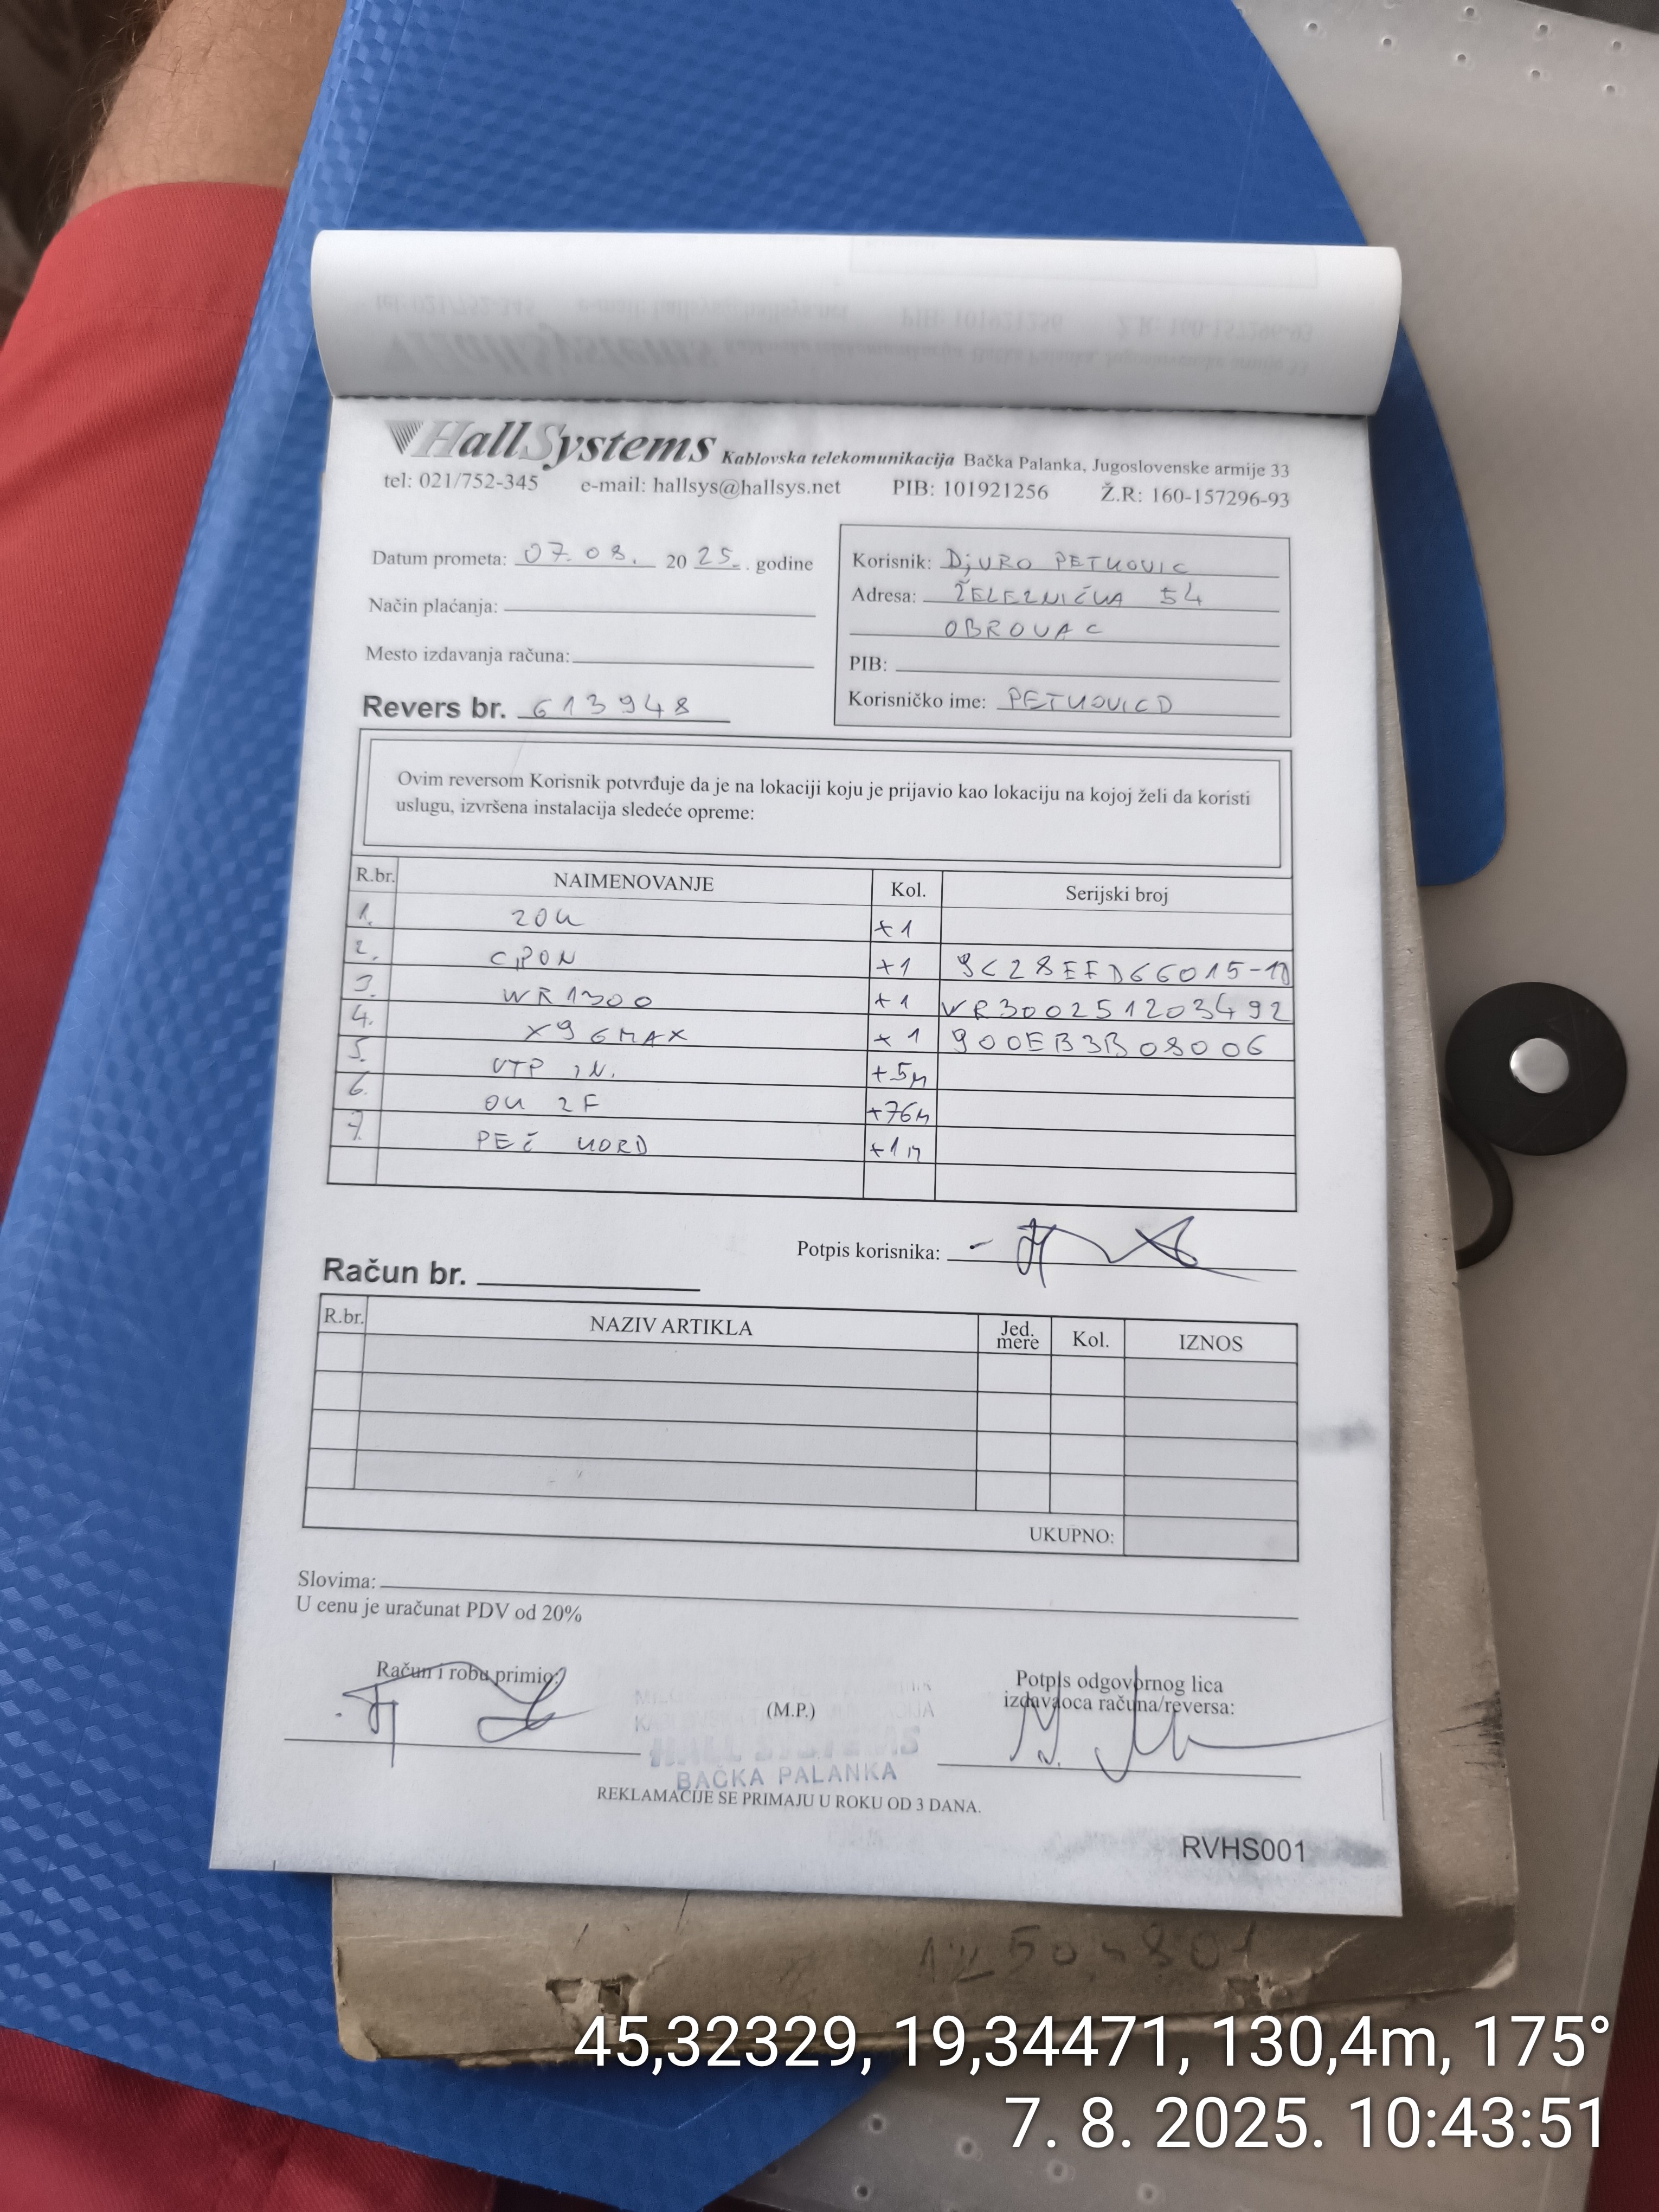 HallSystems Kablovska telekomunikacija Bačka Palanka, Jugoslovenske armije 33
tel: 021/752-345 e-mail: hallsys@hallsys.net PIB: 101921256 Ž.R: 160-157296-93
Datum prometa: 07.08. 2025. godine
Način plaćanja:
Mesto izdavanja računa:
Revers br. 613948
Korisnik: DjURO PETKOVIC
Adresa: ŽELEZNIČKA 54
OBROVAC
PIB:
Korisničko ime: PETKOVICD
Ovim reversom Korisnik potvrđuje da je na lokaciji koju je prijavio kao lokaciju na kojoj želi da koristi
uslugu, izvršena instalacija sledeće opreme:
R.br. NAIMENOVANJE Kol. Serijski broj
1. ZOK +1
2. GPON +1
3. WR1300 +1 WR300251203492
4. X96MAX +1 900EB3B08006
5. UTP IN. +5M
6. OK 2F +76M
7. PEČ KORD +1M
Potpis korisnika:
Račun br.
R.br. NAZIV ARTIKLA Jed. mere Kol. IZNOS
UKUPNO:
Slovima:
U cenu je uračunat PDV od 20%
Račun i robu primio:
(M.P.)
Potpis odgovornog lica
izdavaoca računa/reversa:
HALL SYSTEMS
BAČKA PALANKA
REKLAMACIJE SE PRIMAJU U ROKU OD 3 DANA.
RVHS001
45,32329, 19,34471, 130,4m, 175°
7. 8. 2025. 10:43:51